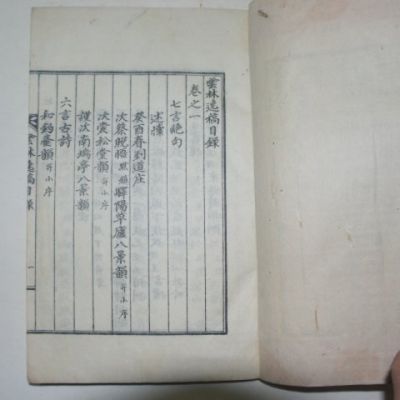 雲林遺稿目錄
卷之一
七言絶句
述懷
癸酉春到道庄
次蔡晩醒驛陽草廬八景韻 並小序
次雲松堂韻 並小序
謹次南塢亭八景韻
六言古詩
和釣臺韻 並小序
雲林遺稿目錄
一